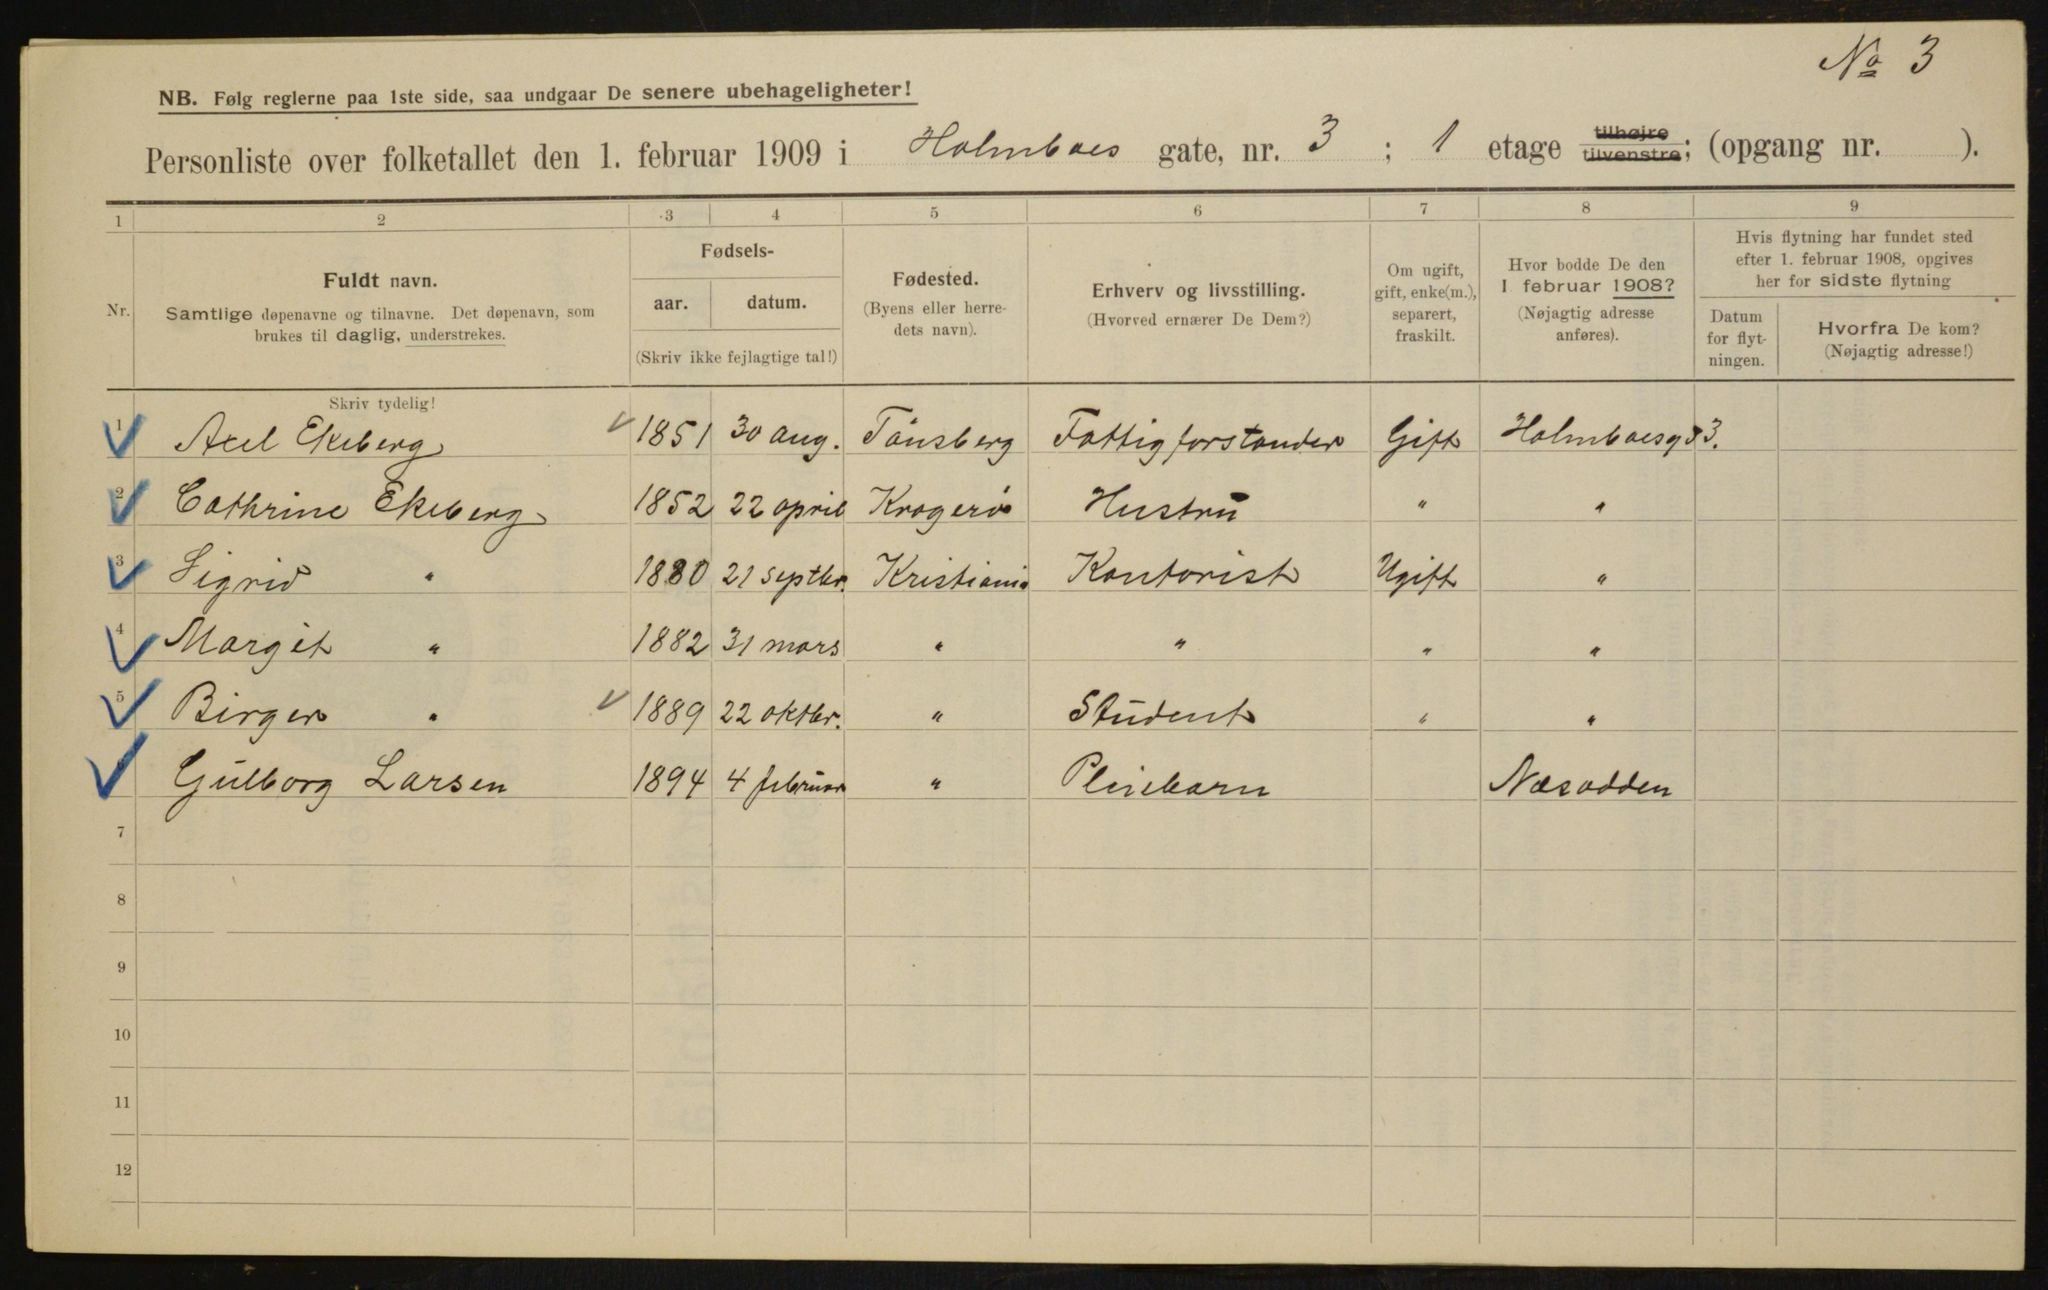 No 3
NB. Følg reglerne paa 1ste side, saa undgaar De senere ubehageligheter!
Personliste over folketallet den 1. februar 1909 i Holmboes gate, nr. 3 ; 1 etage tilhøjre tilvenstre; (opgang nr. ).
1 2 3 4 5 6 7 8 9
Nr.
Fuldt navn.
Samtlige døpenavne og tilnavne. Det døpenavn, som
brukes til daglig, understrekes.
Fødsels-
aar. datum.
(Skriv ikke fejlagtige tal!)
Fødested.
(Byens eller herre-
dets navn).
Erhverv og livsstilling.
(Hvorved ernærer De Dem?)
Om ugift,
gift, enke(m.),
separert,
fraskilt.
Hvor bodde De den
1 februar 1908?
(Nøjagtig adresse
anføres).
Hvis flytning har fundet sted
efter 1. februar 1908, opgives
her for sidste flytning
Datum
for flyt-
ningen.
Hvorfra De kom?
(Nøjagtig adresse!)
Skriv tydelig!
1 Axel Ekeberg 1851 30 aug. Tönsberg Fattigforstander Gift Holmboesg 3.
2 Cathrine Ekeberg 1852 22 april Kragerö Hustru " "
3 Sigrid " 1880 21 septbr. Kristiania Kontorist Ugift "
4 Margit " 1882 31 mars " " " "
5 Birger " 1889 22 oktbr. " Student " "
Gulborg Larsen 1894 4 februar " Pleiebarn Næsodden
7
8
9
10
11
12